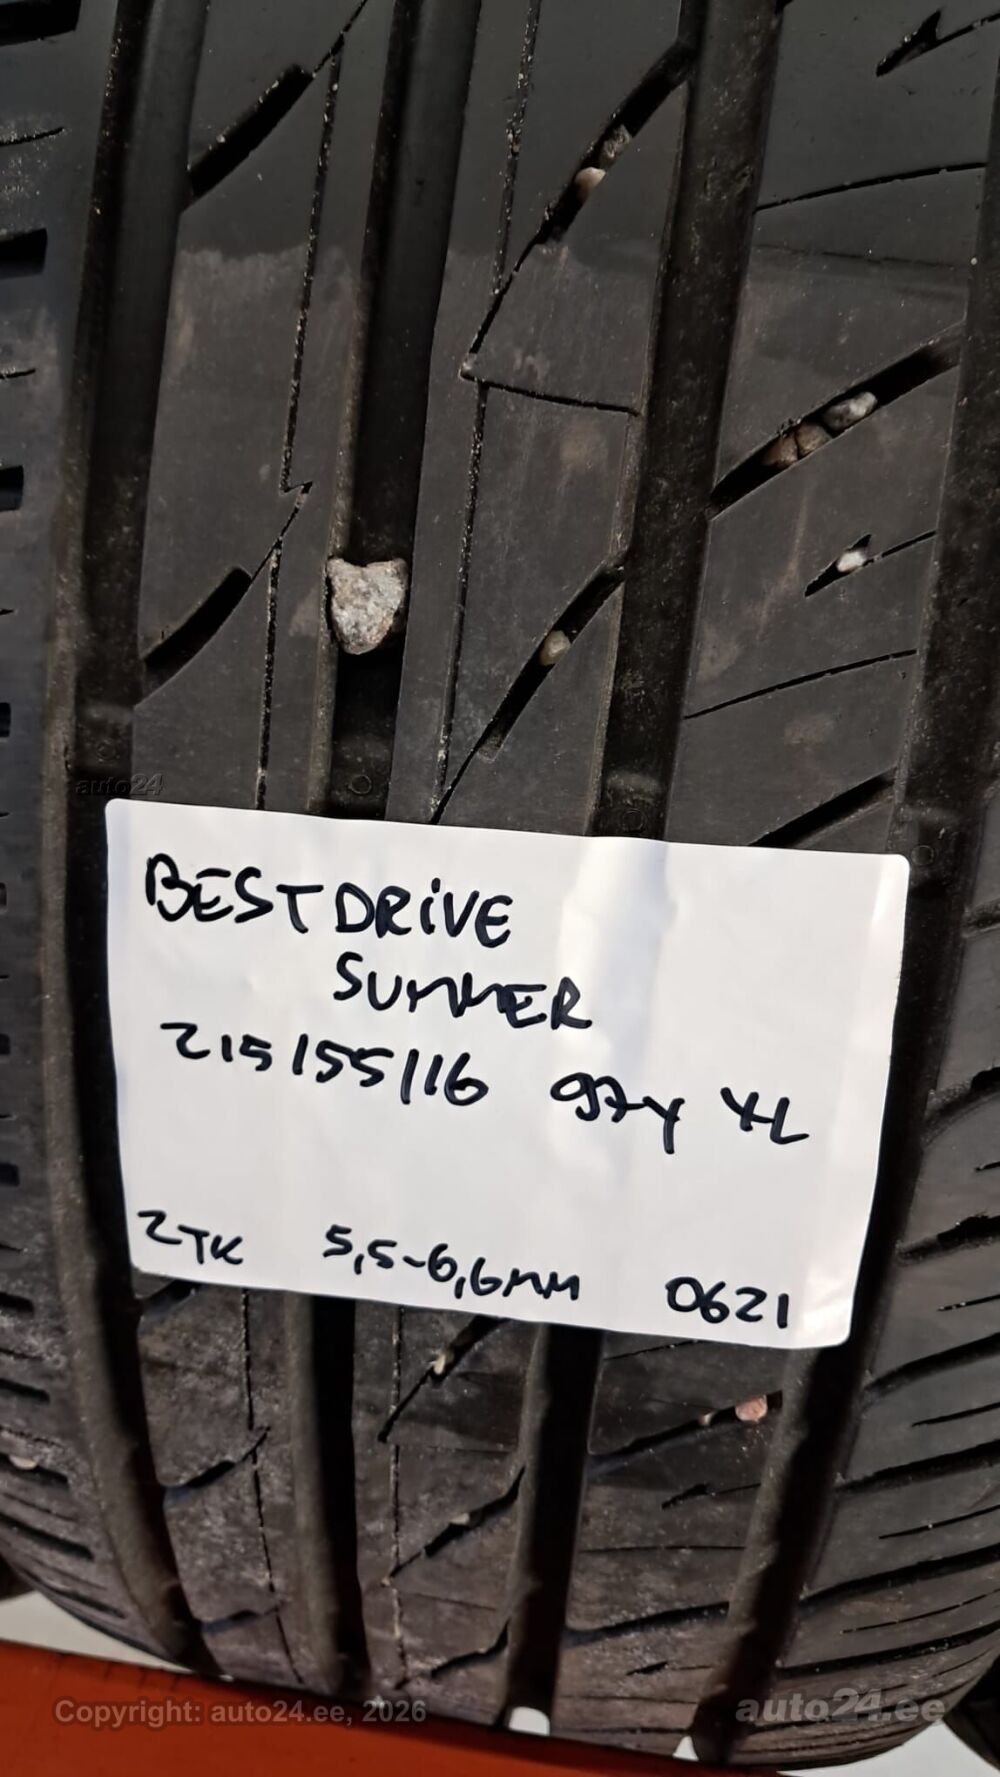 auto24
BESTDRiVE
SUMMER
215/55/16 97Y XL
2TK 5,5-6,6MM 0621
Copyright: auto24.ee, 2026
auto24.ee